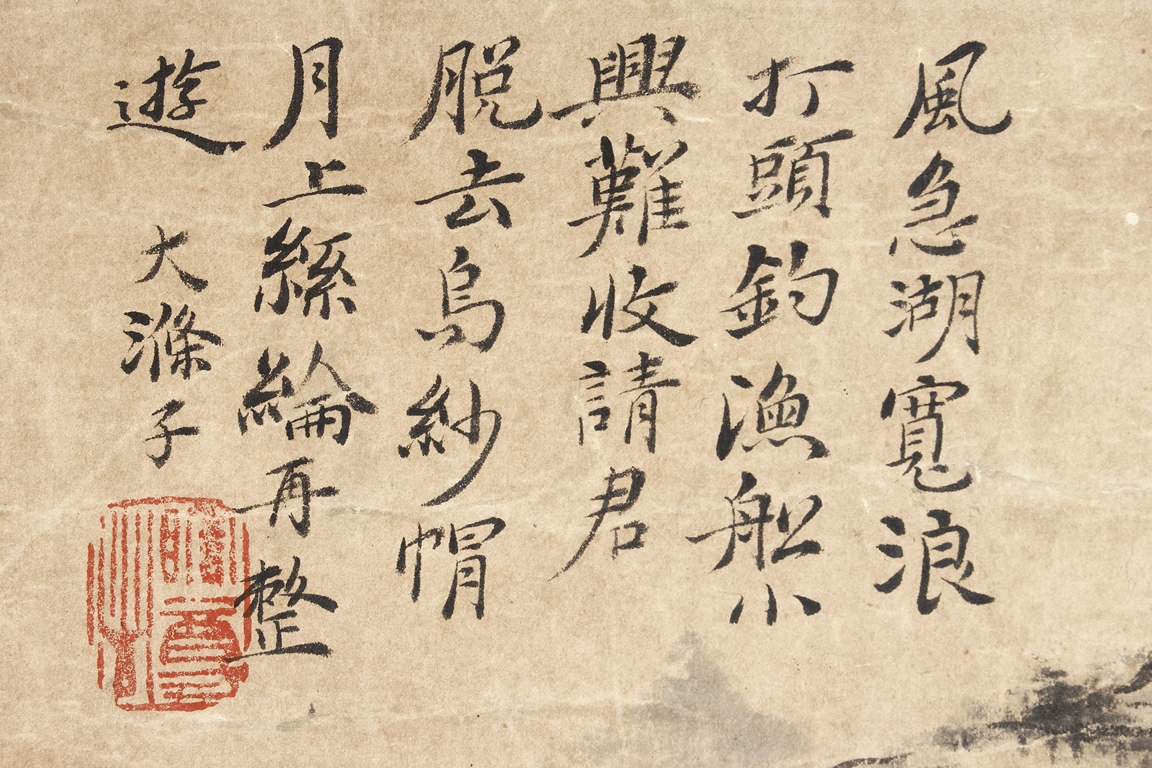 風急湖寬浪
打頭釣漁船小
興難收請君
脫去烏紗帽
月上絲綸再整
遊 大滌子